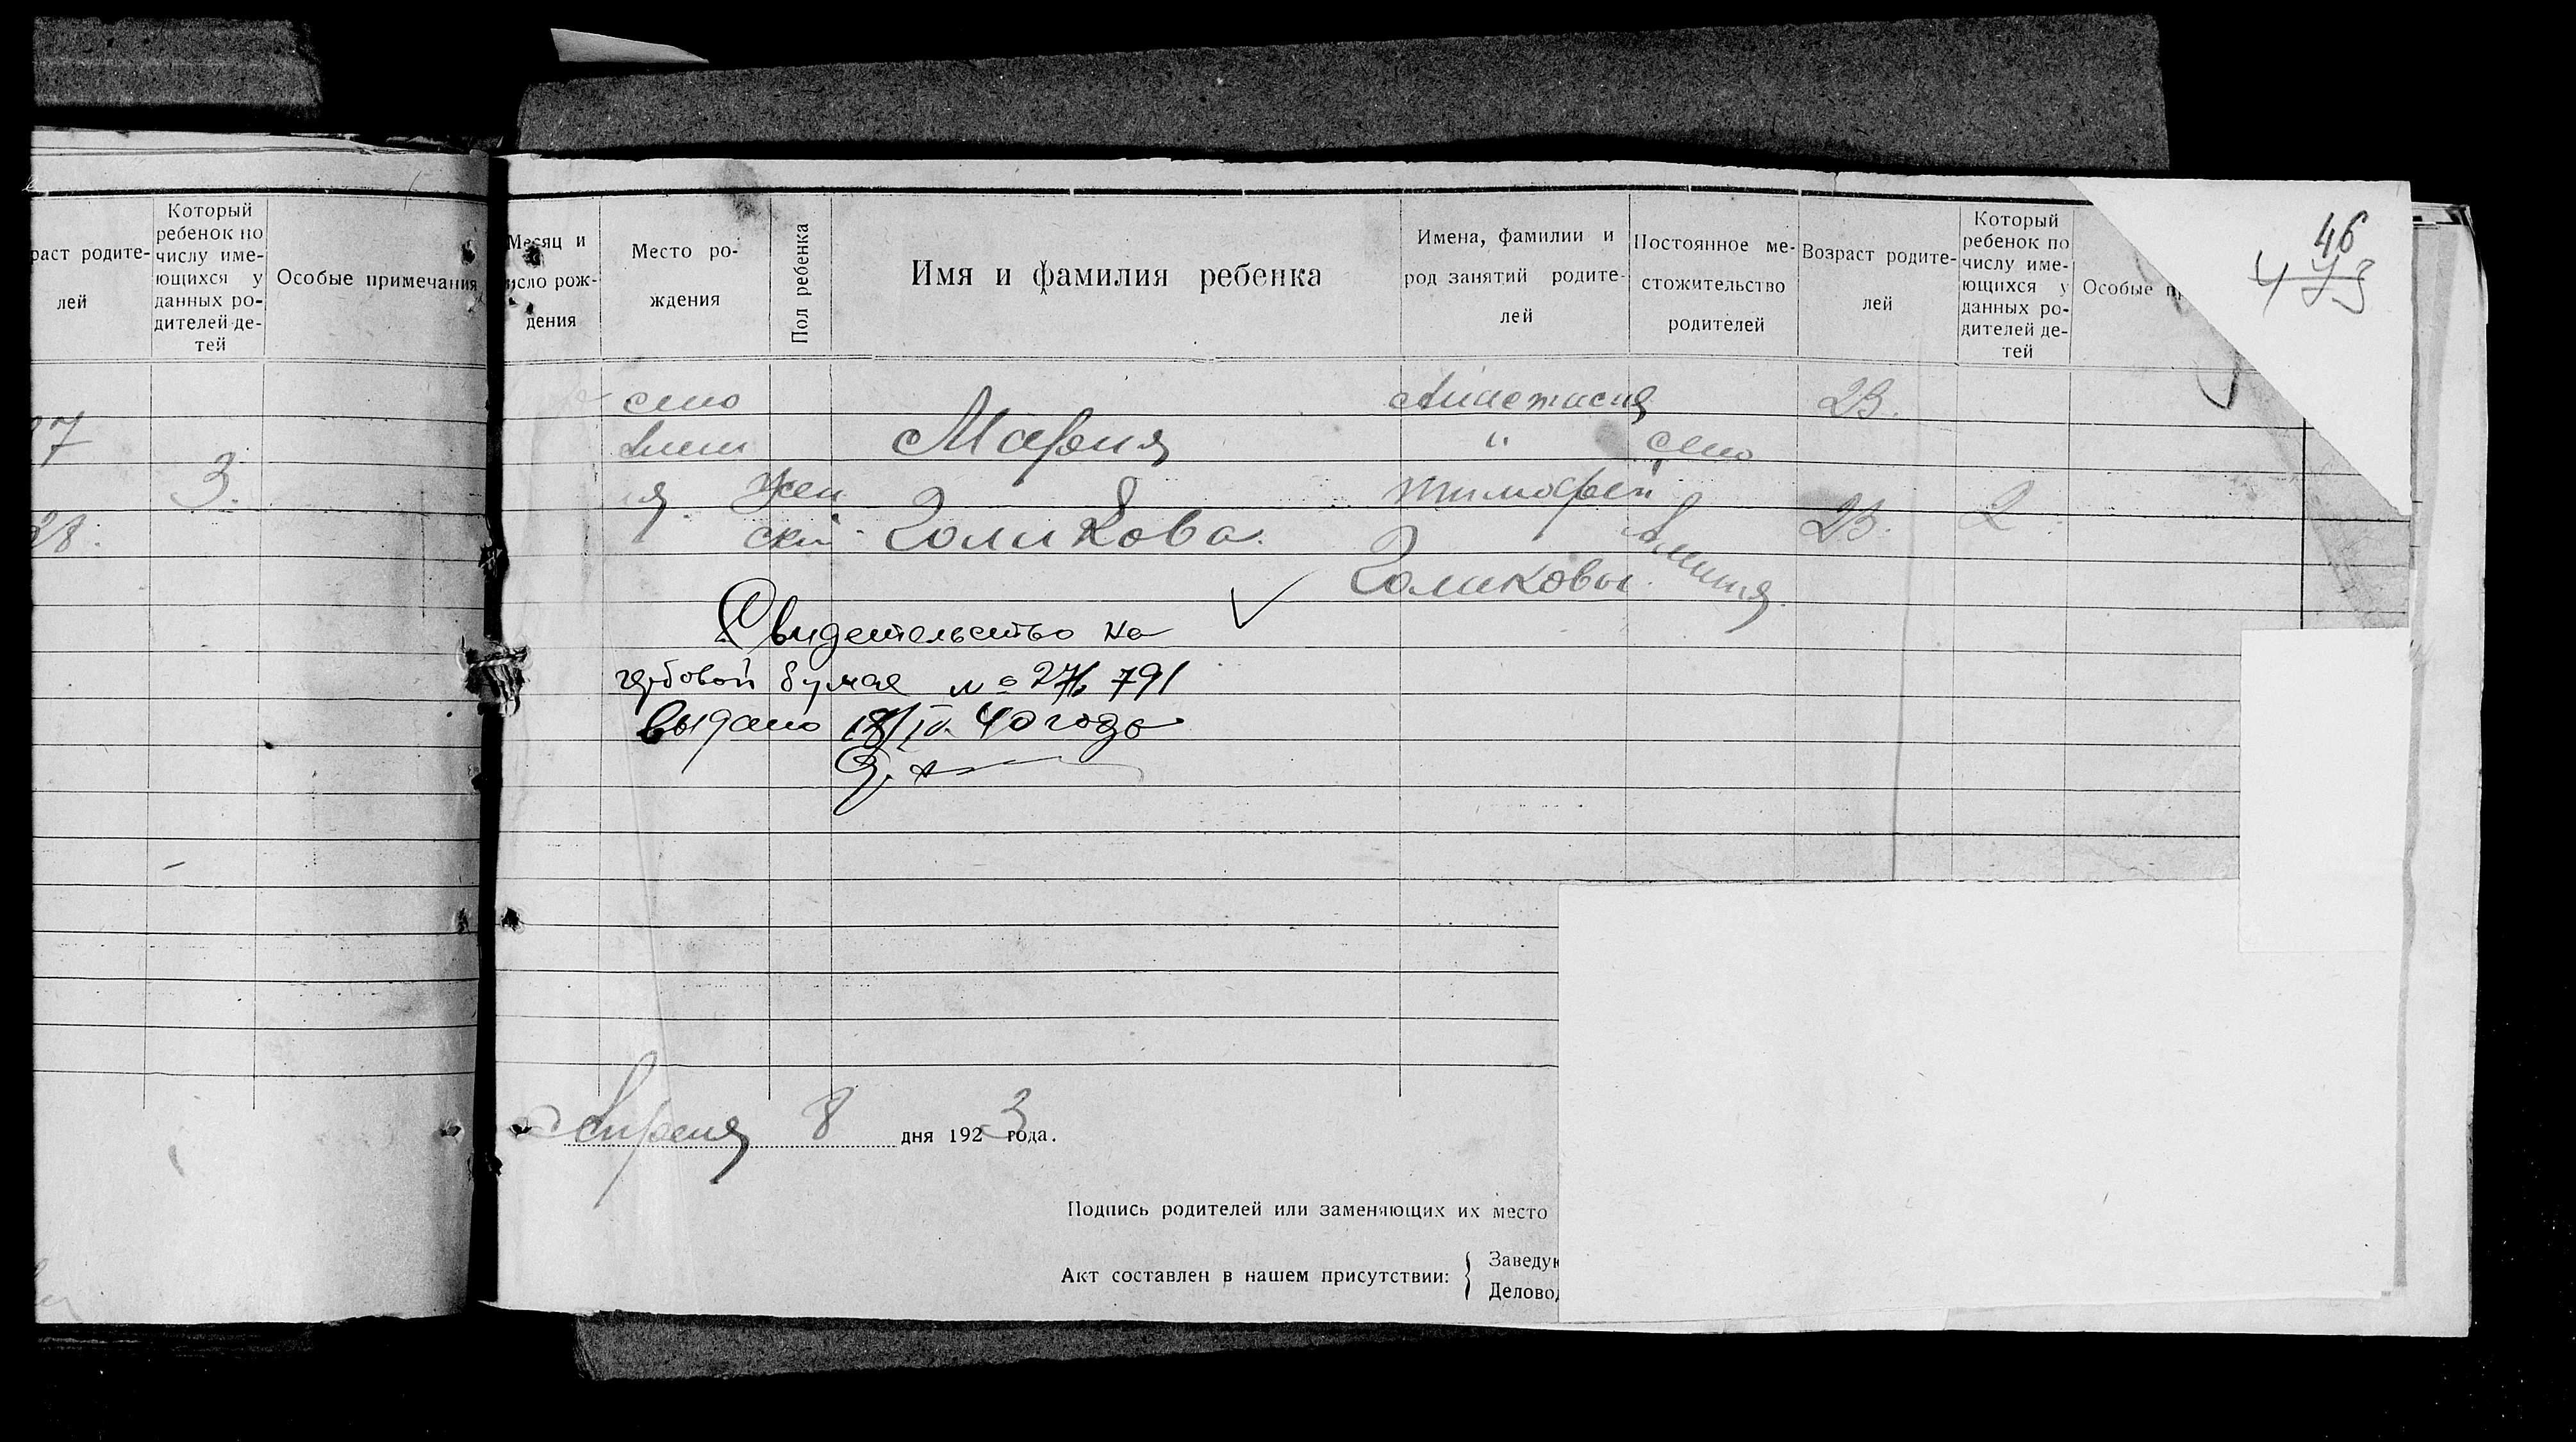 раст родите-
лей
Который
ребенок по
числу име-
ющихся у
данных ро-
дителей де-
тей
Особые примечания
3.
28.
Месяц и
число рож-
дения
Место ро-
ждения
Пол ребенка
Имя и фамилия ребенка
Имена, фамилии и
род занятий родите-
лей
Постоянное ме-
стожительство
родителей
Возраст родите-
лей
Который
ребенок по
числу име-
ющихся у
данных ро-
дителей де-
тей
Особые пр
46
село
Жен
ский
Мария
Голикова.
Анастасия
"
Тимофей
Голиковы.
село
23.
23.
2
Свидетельство на
гербовой бумаге №
выдано 18/IV 40 года
Апреля 8 дня 1923 года.
Подпись родителей или заменяющих их место
Акт составлен в нашем присутствии:
Заведую
Деловод